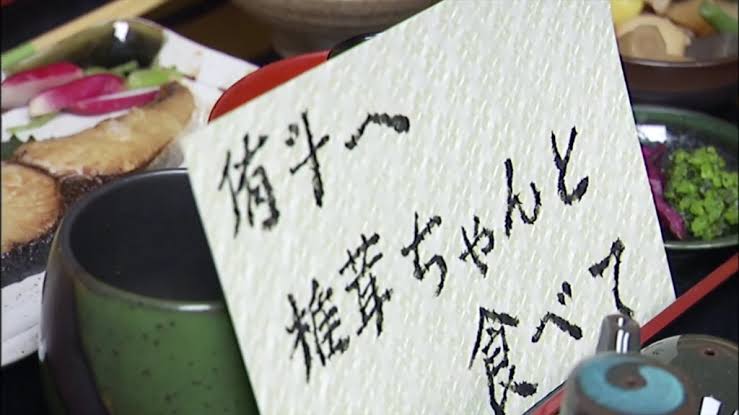 侑斗へ
椎茸ちゃんと
食べて